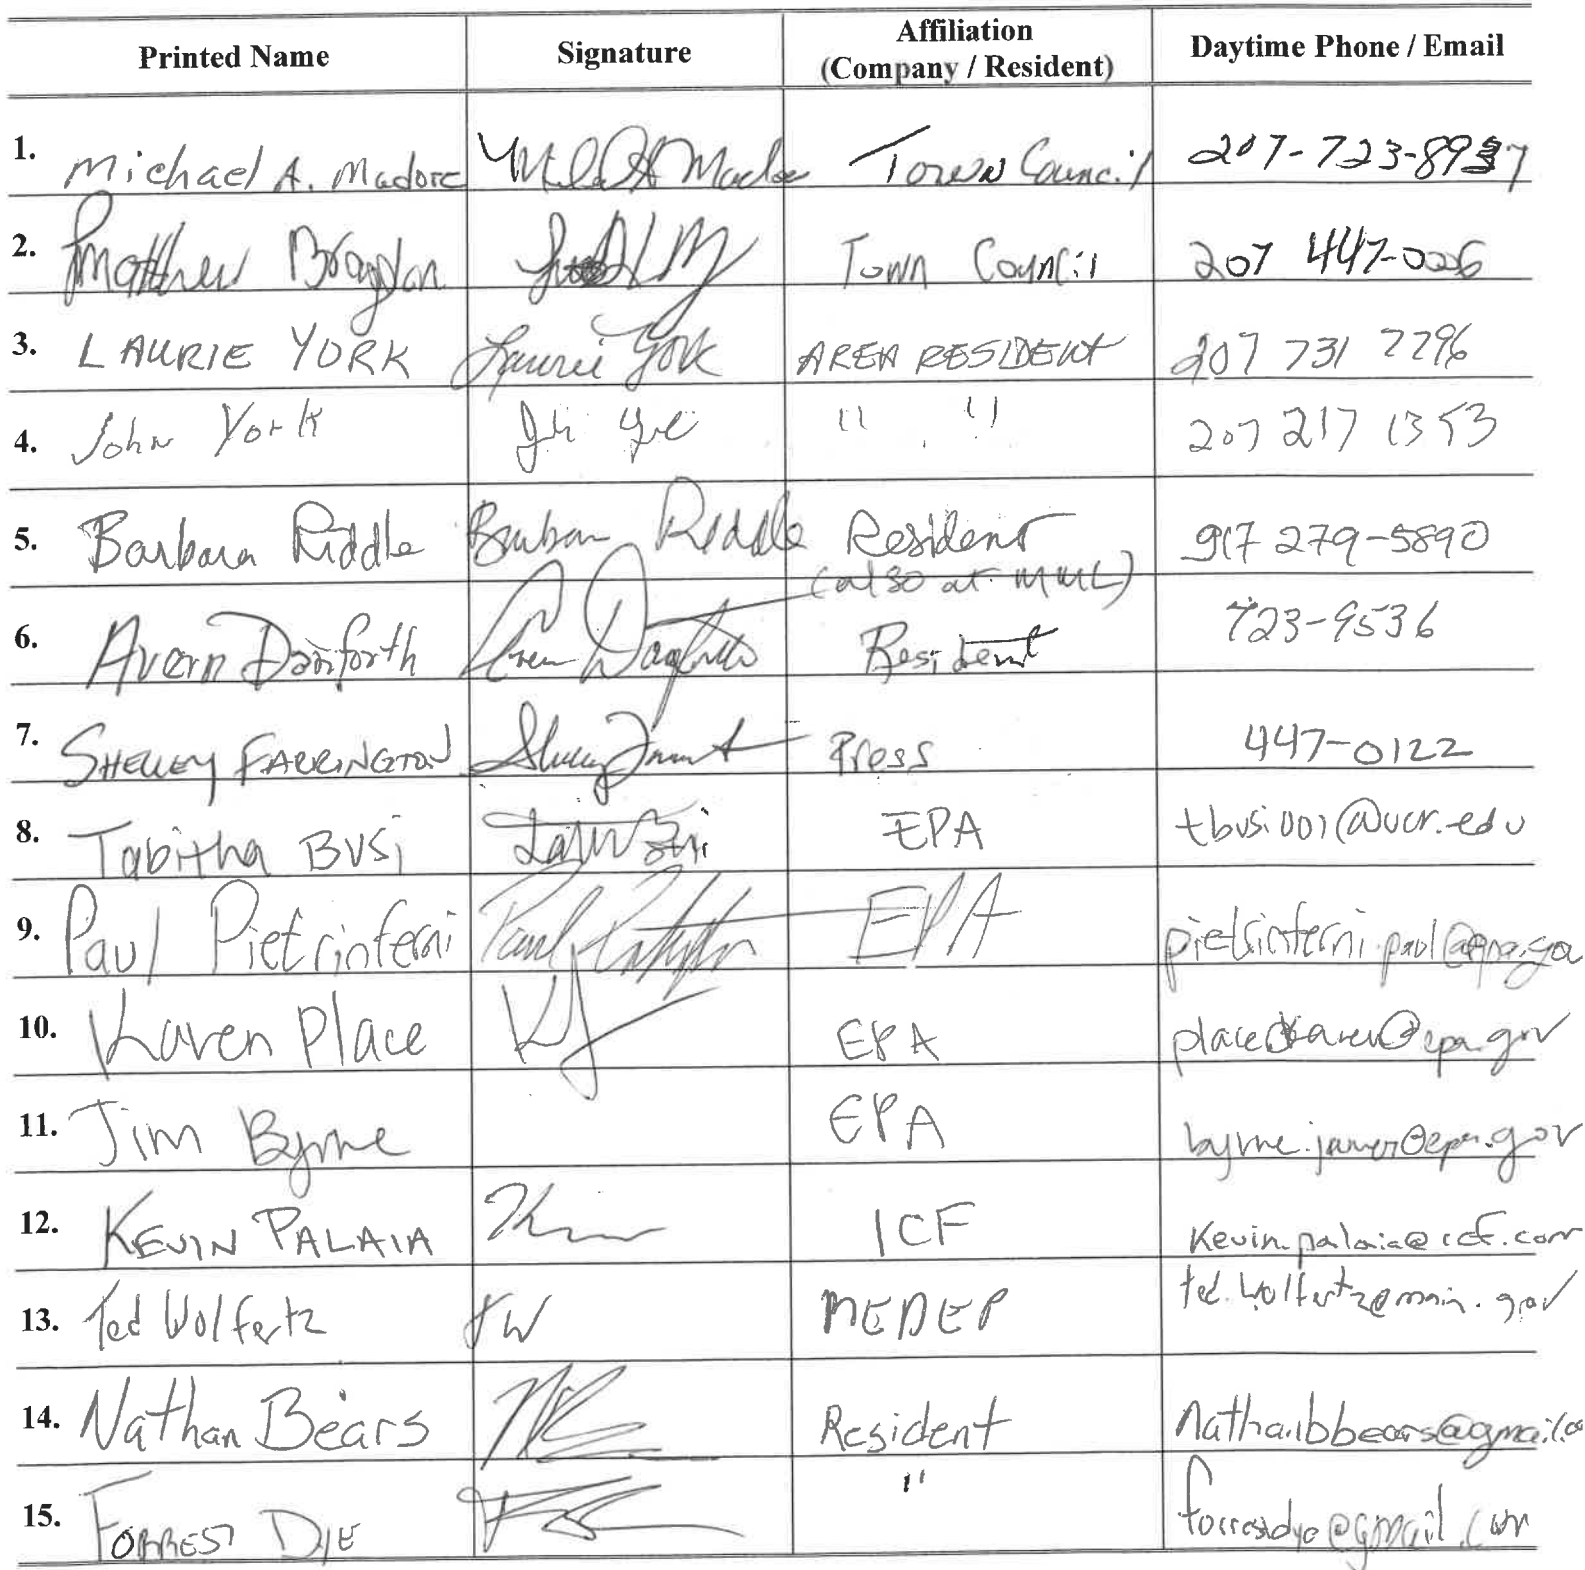 Printed Name Signature Affiliation (Company / Resident) Daytime Phone / Email
1. Michael A. Madore Town Council 207-723-8937
2. Matthew Bragdon Town Council 207 447-0026
3. LAURIE YORK Laurie York AREA RESIDENT 207 731 7796
4. John York " " 207 217 1353
5. Barbara Riddle Barbara Riddle Resident (also at MML) 917 279-5890
6. Avern Danforth Resident 723-9536
7. SHELLEY FARRINGTON Press 447-0122
8. Tabitha BUSi EPA tbusi001@ucr.edu
9. Paul Pietrinferni EPA pietrinferni.paul@epa.gov
10. Karen Place EPA place.karen@epa.gov
11. Jim Byrne EPA byrne.james@epa.gov
12. KEVIN PALAIA ICF Kevin.palaia@icf.com
13. Ted Wolfertz TW MEDEP
14. Nathan Bears Resident
15. FORREST DYE " forrestdye@gmail.com